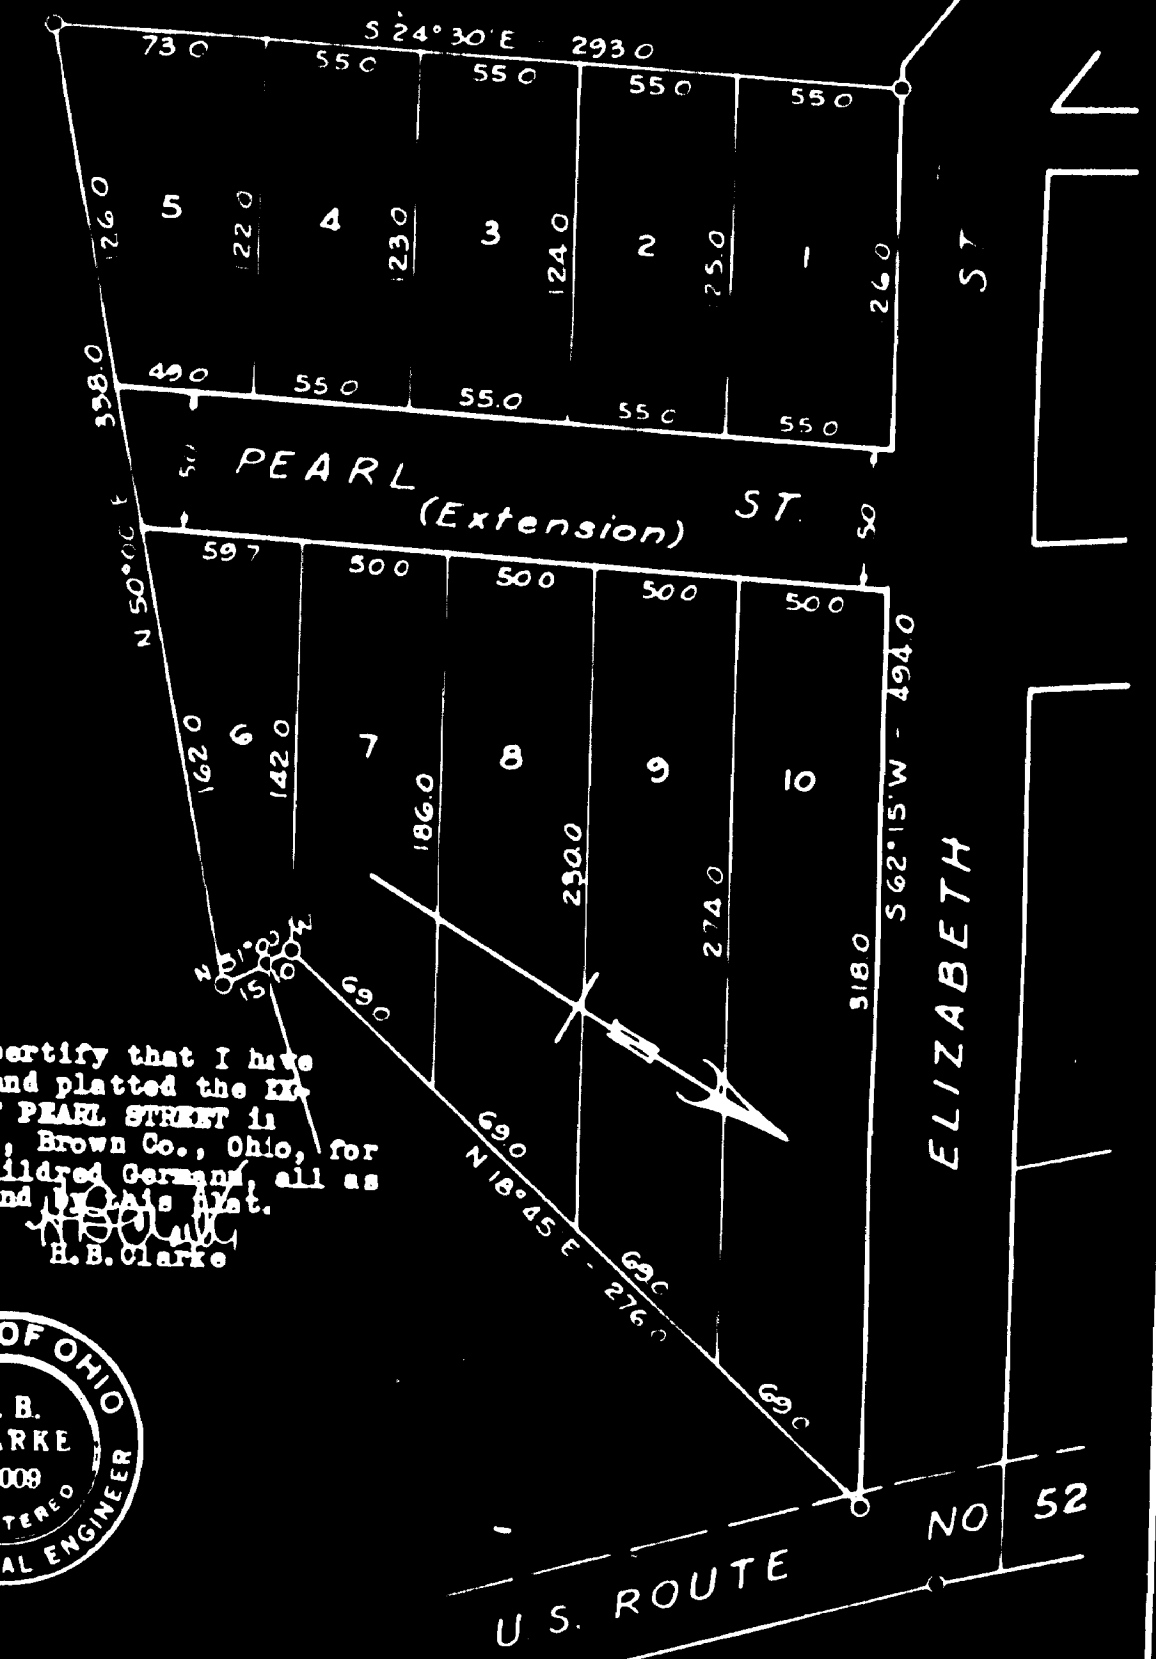 S 24° 30' E 293 0
73 0
55 0
55 0
55 0
55 0
5
4
3
2
1
126 0
122 0
123 0
124 0
125.0
126 0
338.0
49 0
55 0
55.0
55 0
55 0
ST
50
PEARL ST.
(Extension)
50
N 50° 00' E
59 7
50 0
50 0
50 0
50 0
6
7
8
9
10
162 0
142 0
186.0
230.0
274 0
318.0
S 62° 15' W - 494.0
ELIZABETH
N 31° 00 W
15
10
69 0
69.0
69.0
69 0
N 18° 45 E - 276 0
N
certify that I have
and platted the EX-
PEARL STREET in
, Brown Co., Ohio, for
ildred Germann, all as
nd by this plat.
H.B.Clarke
OF OHIO
. B.
ARKE
009
TERED
AL ENGINEER
U.S. ROUTE NO 52